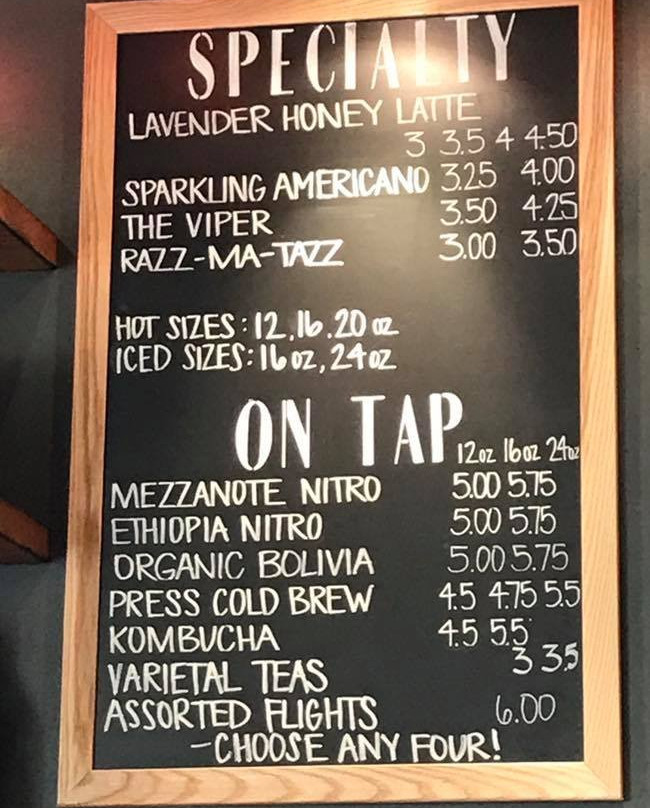 SPECIALTY
LAVENDER HONEY LATTE
3 3.5 4 4.50
SPARKLING AMERICANO 3.25 4.00
THE VIPER 3.50 4.25
RAZZ-MA-TAZZ 3.00 3.50
HOT SIZES: 12, 16. 20 oz
ICED SIZES: 16 oz, 24 oz
ON TAP
12oz 16oz 24oz
MEZZANOTE NITRO 5.00 5.75
ETHIOPIA NITRO 5.00 5.75
ORGANIC BOLIVIA 5.00 5.75
PRESS COLD BREW 4.5 4.75 5.5
KOMBUCHA 4.5 5.5
VARIETAL TEAS 3 3.5
ASSORTED FLIGHTS 6.00
-CHOOSE ANY FOUR!